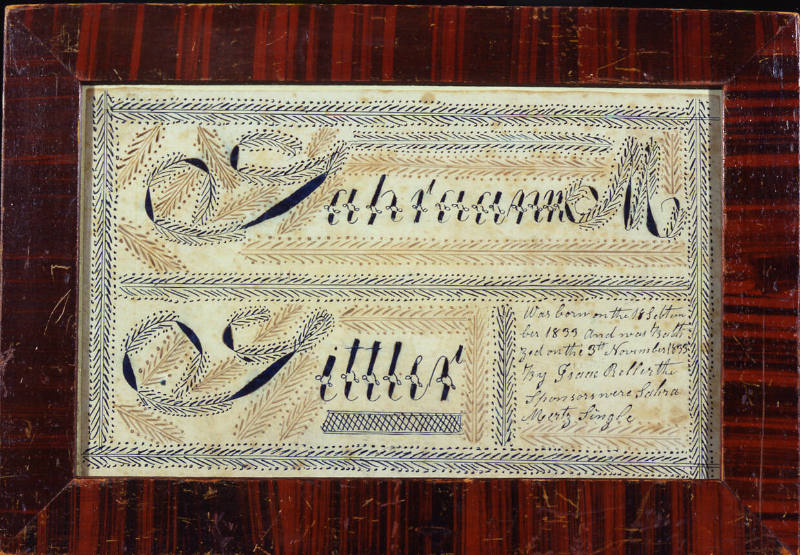 Sahraann M
Sittler
Was born on the 18 Sebtem
ber 1833 And was Babti
zed on the 3th November
By Isaac the
Sponsors were Sahra
Mertz Single